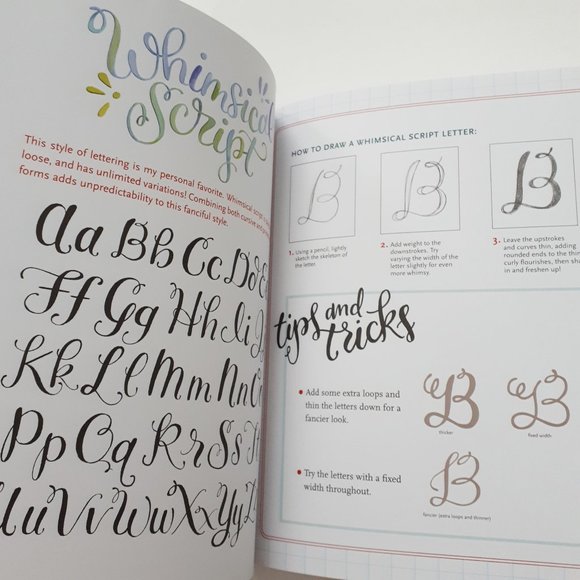 Whimsical
Script
This style of lettering is my personal favorite. Whimsical script is
loose, and has unlimited variations! Combining both cursive and
forms adds unpredictability to this fanciful style.
Aa Bb Cc Dd
Ff Gg Hh Ii
Kk Ll Mm Nn
Pp Qq Rr Ss
Uu Vv Ww Xx Yy
HOW TO DRAW A WHIMSICAL SCRIPT LETTER:
B
B
B
1. Using a pencil, lightly
sketch the skeleton of
the letter.
2. Add weight to the
downstrokes. Try
varying the width of the
letter slightly for even
more whimsy.
3. Leave the upstrokes
and curves thin, adding
rounded ends to the thin
curly flourishes, then
in and freshen up!
tips and
tricks
• Add some extra loops and
thin the letters down for a
fancier look.
B
thicker
B
fixed width
• Try the letters with a fixed
width throughout.
B
fancier (extra loops and thinner)